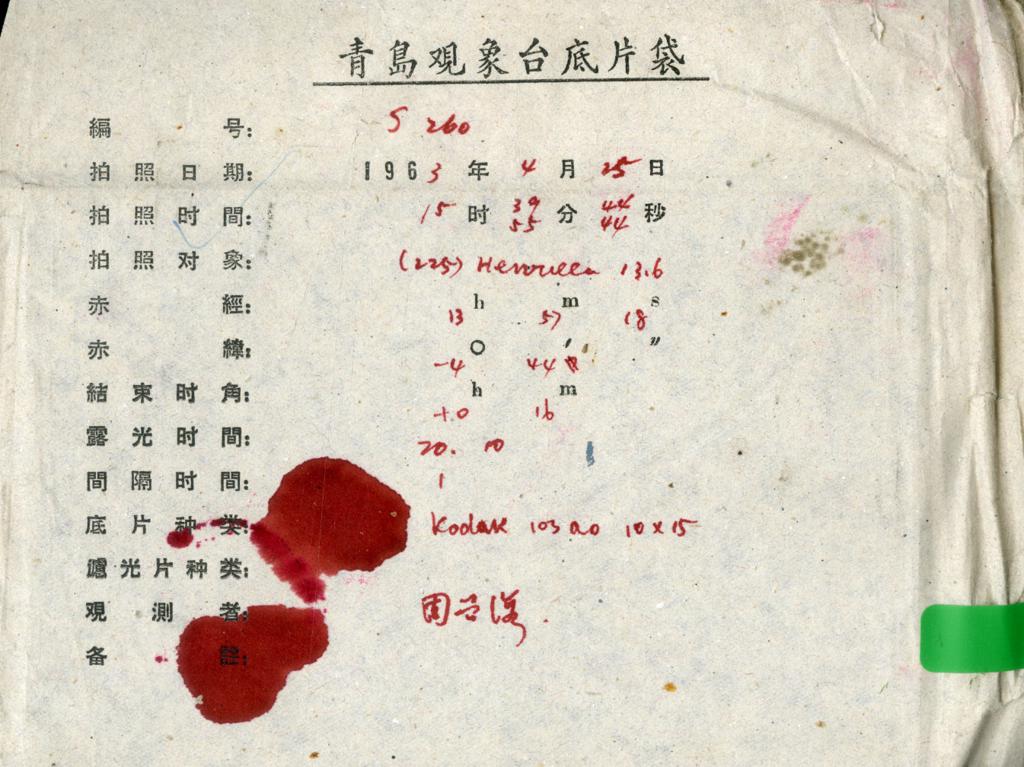 青島观象台底片袋
編号: S 260
拍照日期: 1963年4月25日
拍照时間: 15时39分44秒
55 44
拍照对象: (225) Henrietta 13.6
赤經: 13h 57m 18s
赤緯: -4° 44′ ″
結束时角: +0h 16m
露光时間: 20. 10
間隔时間: 1
底片种类: Kodak 103 a0 10×15
濾光片种类:
观測者: 周
备註: